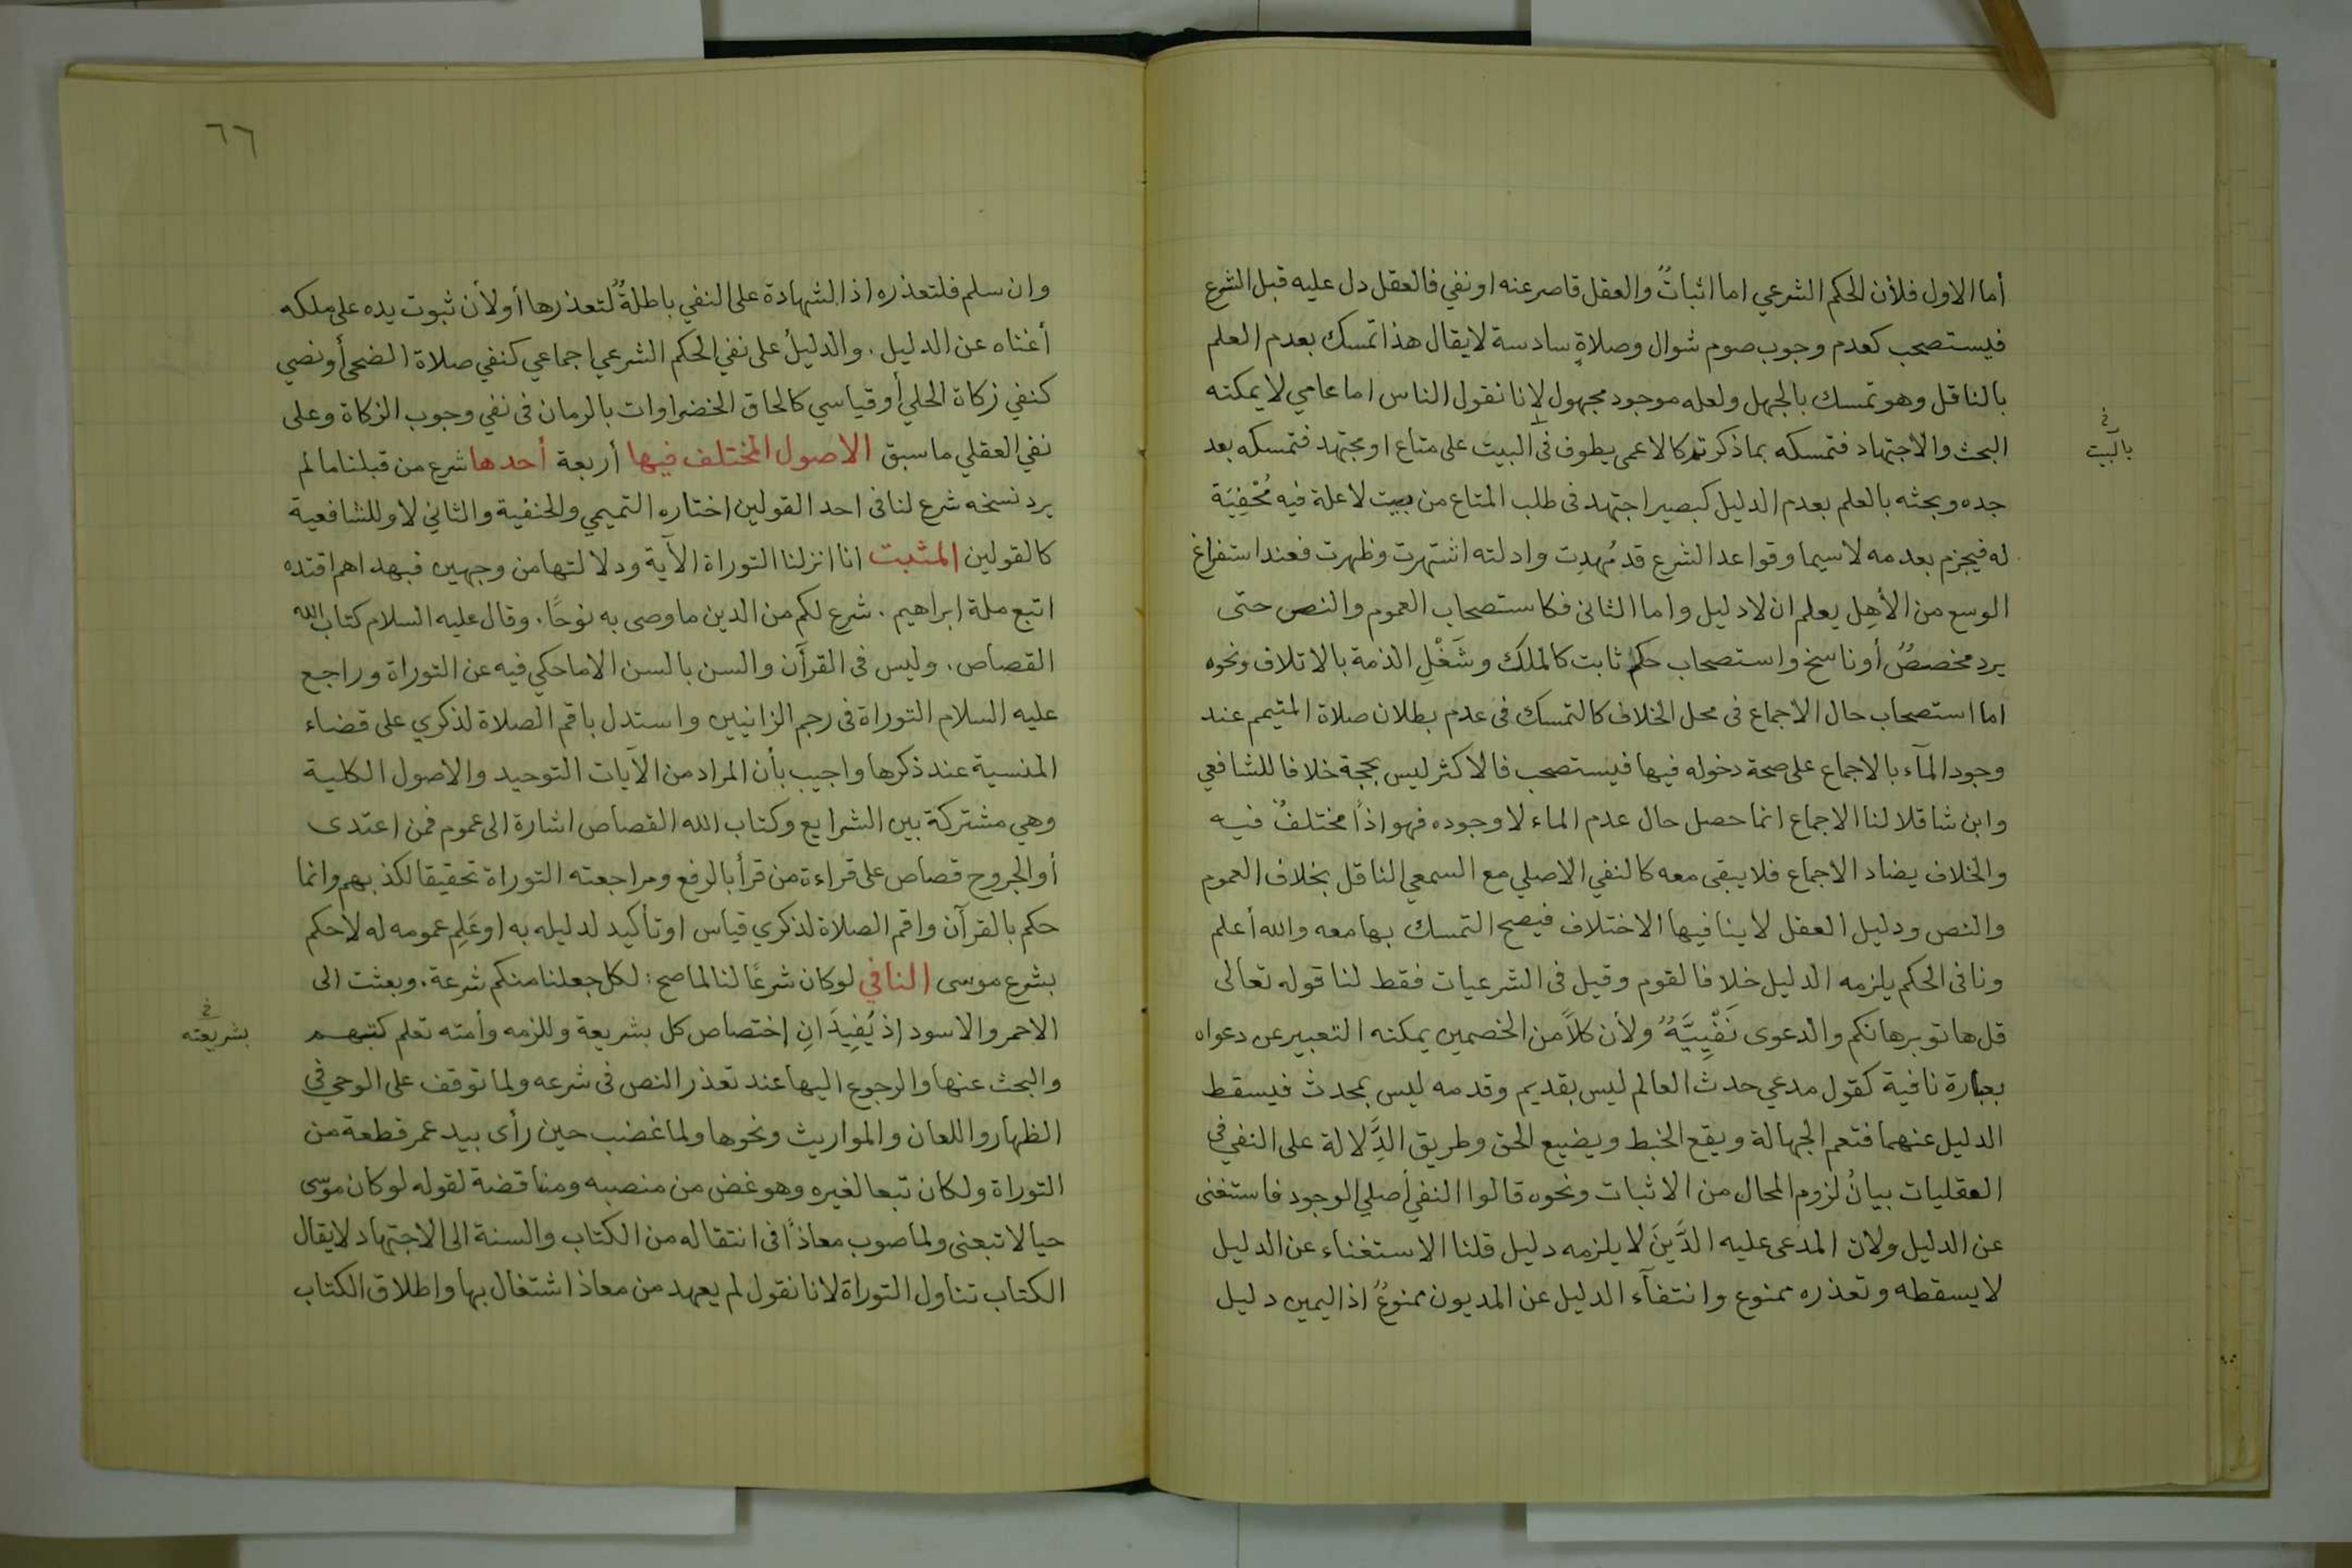 أما الاول فلأن الحكم الشرعي اما اثباتٌ والعقل قاصر عنه او نفي فالعقل دل عليه قبل الشرع
فيستصحب كعدم وجوب صوم شوال وصلاةٍ سادسة لا يقال هذا تمسك بعدم العلم
بالناقل وهو تمسك بالجهل ولعله موجود مجهول لانا نقول الناس اما عامي لا يمكنه
البحث والاجتهاد فتمسكه بما ذكرتم كالاعمى يطوف فى البيت على متاع او مجتهد فتمسكه بعد
بالبيت
جده وبحثه بالعلم بعدم الدليل كبصير اجتهد فى طلب المتاع من بيت لا علة فيه مُخْفِيَة
له فيجزم بعدمه لاسيما وقواعد الشرع قد مُهدِت وادلته اشتهرت وظهرت فعند استفراغ
الوسع من الأهِل يعلم ان لا دليل واما الثانى فكاستصحاب العموم والنص حتى
يرد مخصصٌ أو ناسخ واستصحاب حكم ثابت كالملك وشَغْلِ الذمة بالاتلاف ونحوه
اما استصحاب حال الاجماع فى محل الخلاف كالتمسك فى عدم بطلان صلاة المتيمم عند
وجود المآء بالاجماع على صحة دخوله فيها فيستصحب فالاكثر ليس بحجة خلافا للشافعي
وابن شاقلا لنا الاجماع انما حصل حال عدم الماء لا وجوده فهو اذاً مختلفٌ فيه
والخلاف يضاد الاجماع فلا يبقى معه كالنفي الاصلي مع السمعي الناقل بخلاف العموم
والنص ودليل العقل لا ينافيها الاختلاف فيصح التمسك بها معه والله أعلم
ونافى الحكم يلزمه الدليل خلافا لقوم وقيل فى الشرعيات فقط لنا قوله تعالى
قل هاتو برهانكم والدعوى نَفْيِيَّةٌ ولأن كلاً من الخصمين يمكنه التعبير عن دعواه
بعبارة نافية كقول مدعي حدث العالم ليس بقديم وقدمه ليس بمحدث فيسقط
الدليل عنهما فتعم الجهالة ويقع الخبط ويضيع الحق وطريق الدِّلالة على النفي في
العقليات بيانُ لزوم المحال من الاثبات ونحوه قالوا النفي أصلي الوجود فاستغنى
عن الدليل ولان المدعى عليه الدَّينَ لا يلزمه دليل قلنا الاستغناء عن الدليل
لا يسقطه وتعذره ممنوع وانتفآء الدليل عن المديون ممنوعٌ اذ اليمين دليل
٦٦
وان سلم فلتعذره اذ الشهادة على النفي باطلةٌ لتعذرها أو لأن ثبوت يده على ملكه
أغناه عن الدليل. والدليلُ على نفي الحكم الشرعي اجماعي كنفي صلاة الضحى أو نصي
كنفي زكاة الحلي أو قياسي كالحاق الخضراوات بالرمان فى نفي وجوب الزكاة وعلى
نفي العقلي ما سبق الاصول المختلف فيها أربعة أحدها شرع من قبلنا مالم
يرد نسخه شرع لنا فى احد القولين اختاره التميمي والحنفية والثاني لا وللشافعية
كالقولين المثبت انا انزلنا التوراة الآية ودلالتها من وجهين فبهداهم اقتده
اتبع ملة ابراهيم. شرع لكم من الدين ما وصى به نوحًا. وقال عليه السلام كتاب الله
القصاص. وليس فى القرآن والسن بالسن الا ما حكي فيه عن التوراة وراجع
عليه السلام التوراة فى رجم الزانيين واستدل باقم الصلاة لذكري على قضاء
المنسية عند ذكرها واجيب بأن المراد من الآيات التوحيد والاصول الكلية
وهي مشتركة بين الشرايع وكتاب الله القصاص اشارة الى عموم فمن اعتدى
أو الجروح قصاص على قراءة من قرأ بالرفع ومراجعته التوراة تحقيقا لكذبهم وانما
حكم بالقرآن واقم الصلاة لذكري قياس او تأكيد لدليله به او عَلِم عمومه له لا حكم
بشرع موسى النافي لو كان شرعًا لنا لما صح: لكل جعلنا منكم شرعة. وبعثت الى
الاحمر والاسود إذ يُفِيدَانِ إختصاص كل بشريعة وللزمه وأمته تعلم كتبهم
بشريعته
والبحث عنها والرجوع اليها عند تعذر النص فى شرعه ولما توقف على الوحي في
الظهار واللعان والمواريث ونحوها ولما غضب حين رأى بيد عمر قطعة من
التوراة ولكان تبعا لغيره وهو غض من منصبه ومناقضة لقوله لو كان موسى
حيا لاتبعنى ولما صوب معاذًا فى انتقاله من الكتاب والسنة الى الاجتهاد لا يقال
الكتاب تناول التوراة لانا نقول لم يعهد من معاذ اشتغال بها واطلاق الكتاب